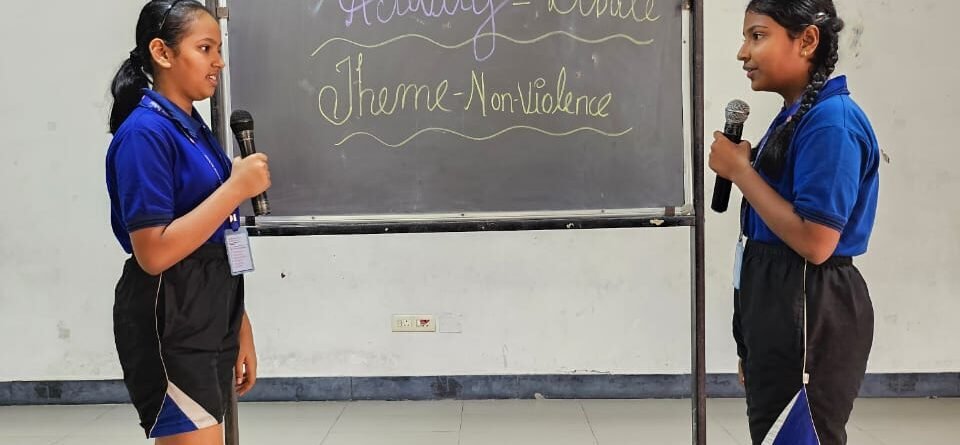 Activity - Debate
Theme - Non-Violence